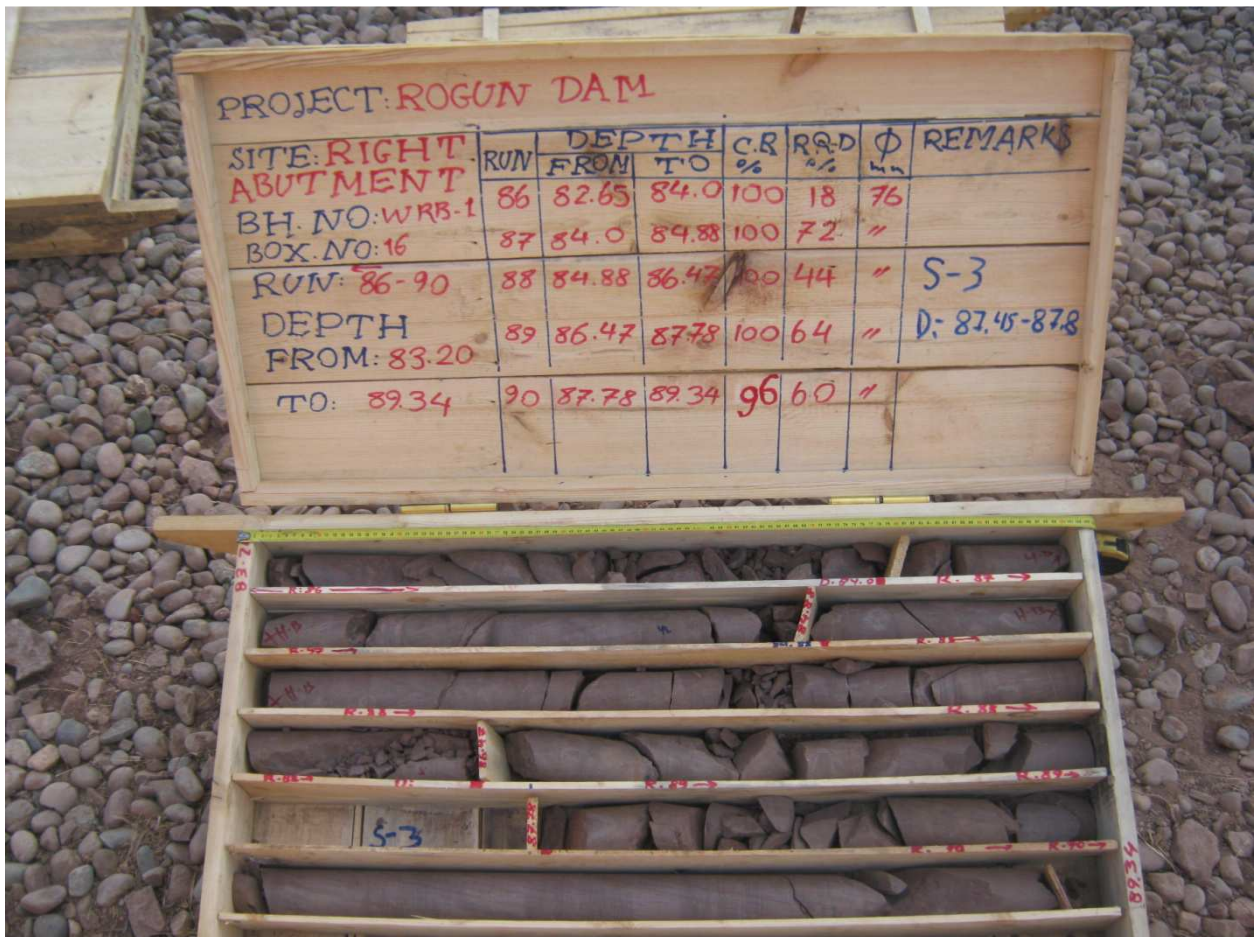 PROJECT: ROGUN DAM
SITE: RIGHT
ABUTMENT
BH. NO: WRB-1
BOX. NO: 16
RUN: 86-90
DEPTH
FROM: 83.20
TO: 89.34
RUN DEPTH C.R % R.Q.D % Φ mm REMARKS
FROM TO
86 82.65 84.0 100 18 76
87 84.0 84.88 100 72 "
88 84.88 86.47 100 44 " S-3
89 86.47 87.78 100 64 " D: 87.45-87.8
90 87.78 89.34 96 60 "
83.2
R:86 D.84.0 R. 87
H-B 84.88 H-B
R.88
H-B
R.88 R. 88
R.88 86.47 R.89 R.89
S-3 87.78
R. 90 R.90
89.34